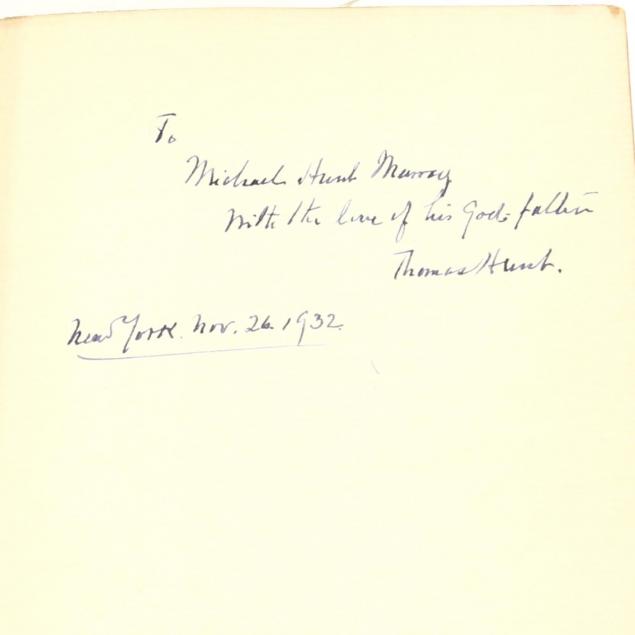 To
Michael Hunt Murray
With the love of his God-father
Thomas Hunt.
New York. Nov. 26. 1932.